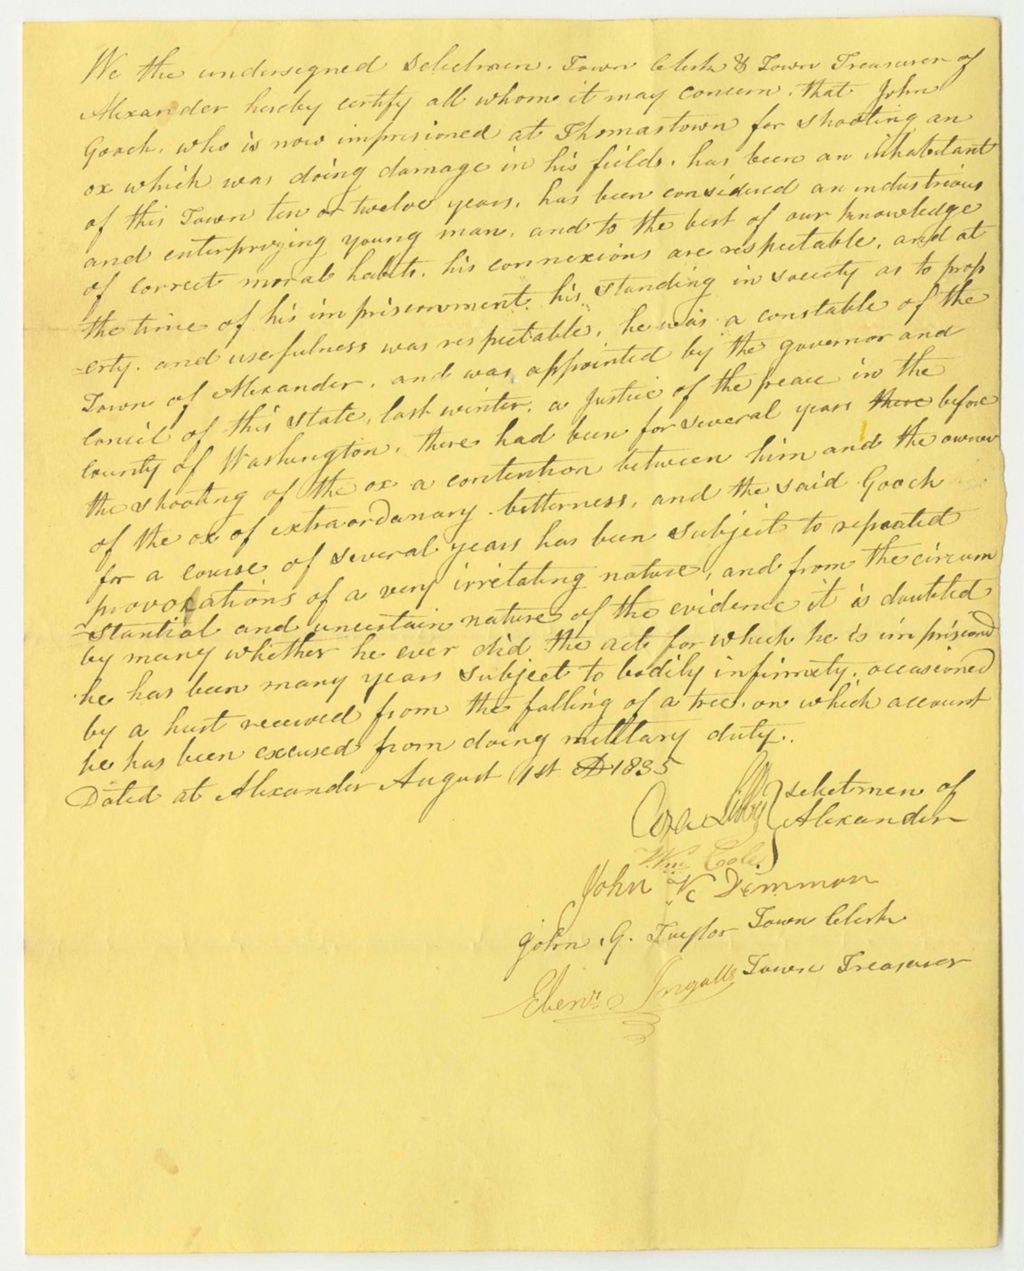 We the undersigned Selectmen, Town Clerk & Town Treasurer of
Alexander hereby certify all whome it may concern, that John
Gooch, who is now imprisioned at Thomastown for shooting an
ox which was doing damage in his field, has been an inhabitant
of this Town ten or twelve years, has been considered an industrious
and enterprizing young man, and to the best of our knowledge
of correct moral habits, his connexions are respectable, and at
the time of his imprisonment his standing in society as to prop
-erty, and usefulness was respectable, he was a constable of the
Town of Alexander, and was appointed by the governor and
Concil of this State, last winter, a Justice of the peace in the
County of Washington, there had been for several years there before
the shooting of the ox a contention between him and the owner
of the ox of extraordanary bitterness, and the said Gooch
for a course of several years has been subject to repeated
provocations of a very irretating nature, and from the circum
-stantial and uncertain nature of the evidence it is doubted
by many whether he ever did the act for which he is imprisond
he has been many years subject to bodily infirmity, occasioned
by a hurt received from the falling of a tree, on which account
he has been excused from doing military duty.
Dated at Alexander August 1st AD 1835
Selectmen of
Alexander
Wm Cole
John K Dimmon
John G. Taylor Town Clerk
Ebenr Ingalls Town Treasurer